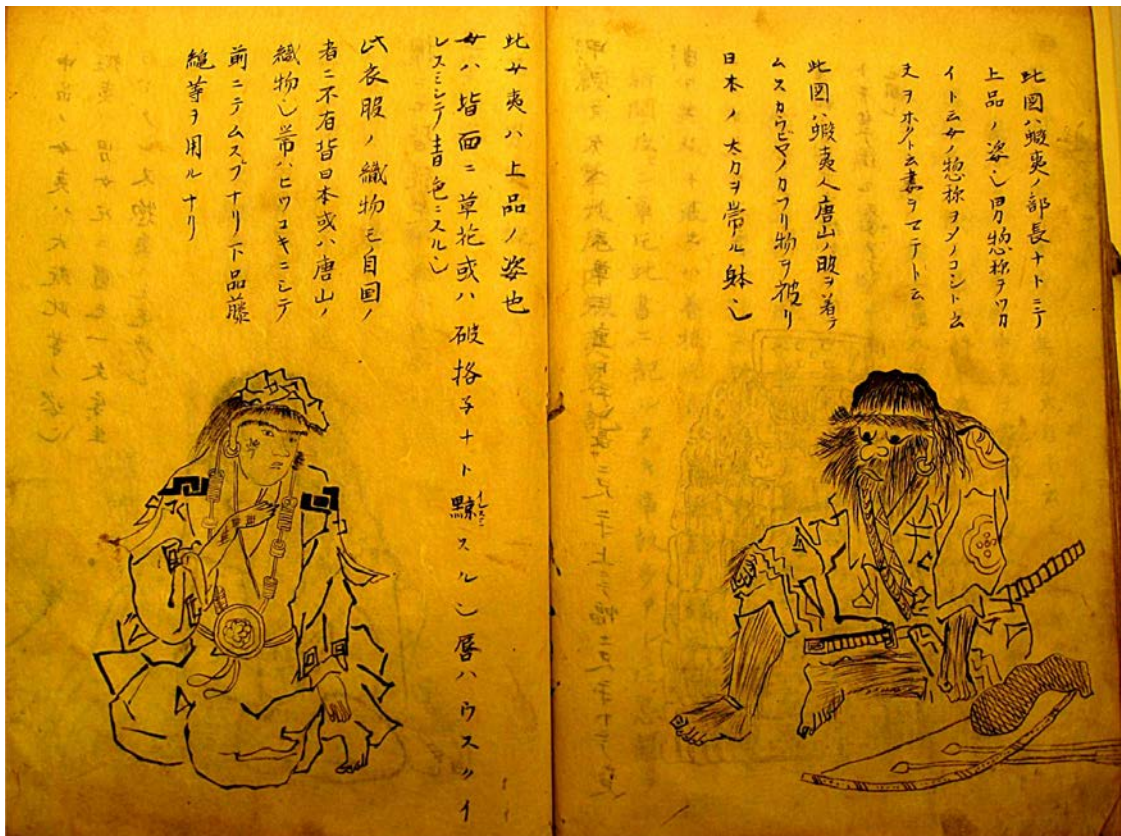 此図ハ蝦夷ノ部長ナトニテ
上品ノ姿也男惣称ヲツカ
イト云女ノ惣称ヲメノコシト云
夫ヲホクト云妻ヲマテト云
此図ハ蝦夷人唐山ノ服ヲ着テ
ノカフリ物ヲ被リ
日本ノ太刀ヲ帯ル躰也
此女夷ハ上品ノ姿也
女ハ皆面ニ草花或ハ破格子ナト黥スル也唇ハウスクイ
レスミシテ青色ニスル也
此衣服ノ織物モ自国ノ
者ニ不有皆日本或ハ唐山ノ
織物也帯ハヒロコキニシテ
前ニテムスブナリ下品藤
縄等ヲ用ルナリ